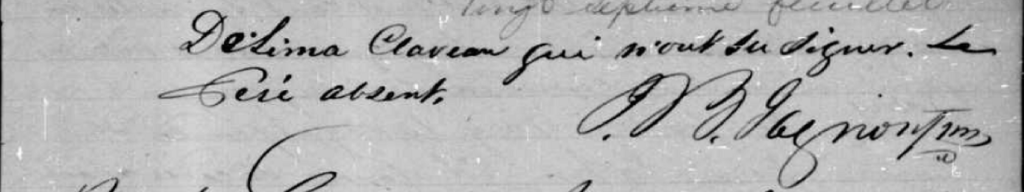 vingt septième feuillet
Delima Claveau qui n'ont su signer. Le
Père absent.
J. B. Gagnon Ptre